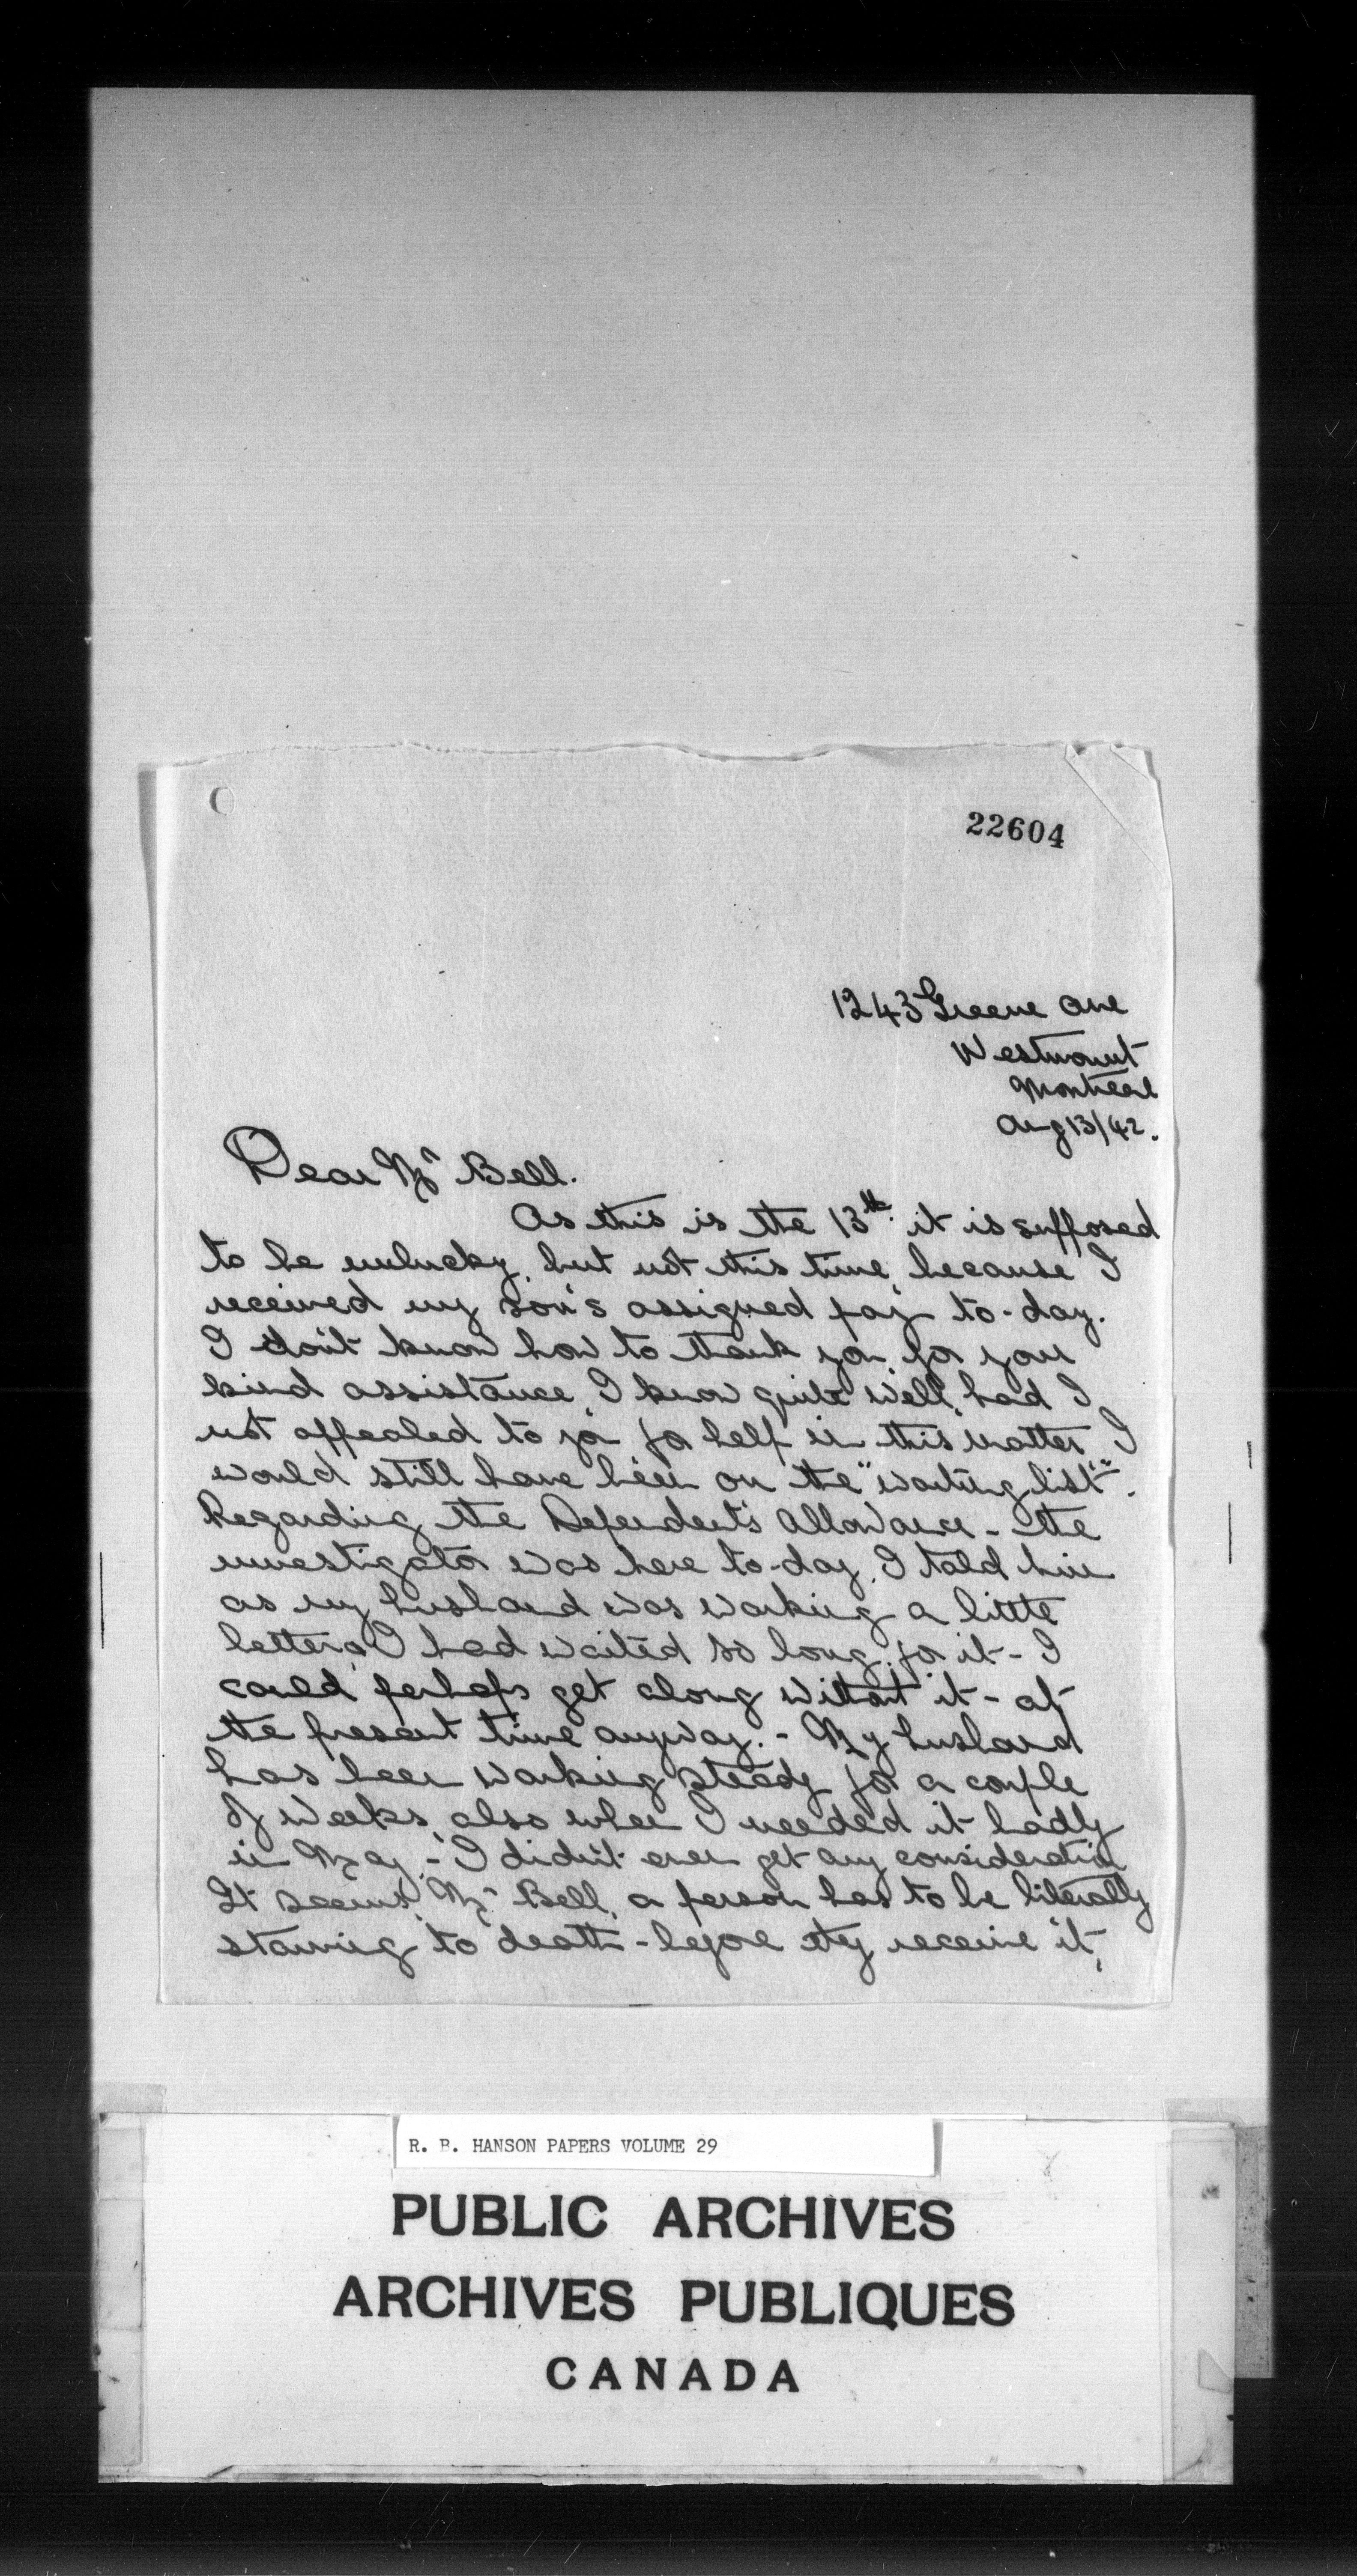 22604
1243 Greene Ave
Westmount
Montreal
Aug 13/42.
Dear Mr Bell.
As this is the 13th. it is supposed
to be unlucky, but not this time, because I
received my son's assigned pay to-day.
I don't know how to thank you, for your
kind assistance, I know quite well, had I
not appealed to you for help in this matter, I
would still have been on the "waiting list".
Regarding the Dependent's Allowance - the
investigator was here to-day, I told him
as my husband was working a little
better, I had waited so long for it - I
could perhaps get along without it - at
the present time anyway. - My husband
has been working steady for a couple
of weeks, also when I needed it badly
in May, - I didn't even get any consideration
It seems, Mr Bell, a person has to be literally
starving to death - before they receive it,
R. B. HANSON PAPERS VOLUME 29
PUBLIC ARCHIVES
ARCHIVES PUBLIQUES
CANADA